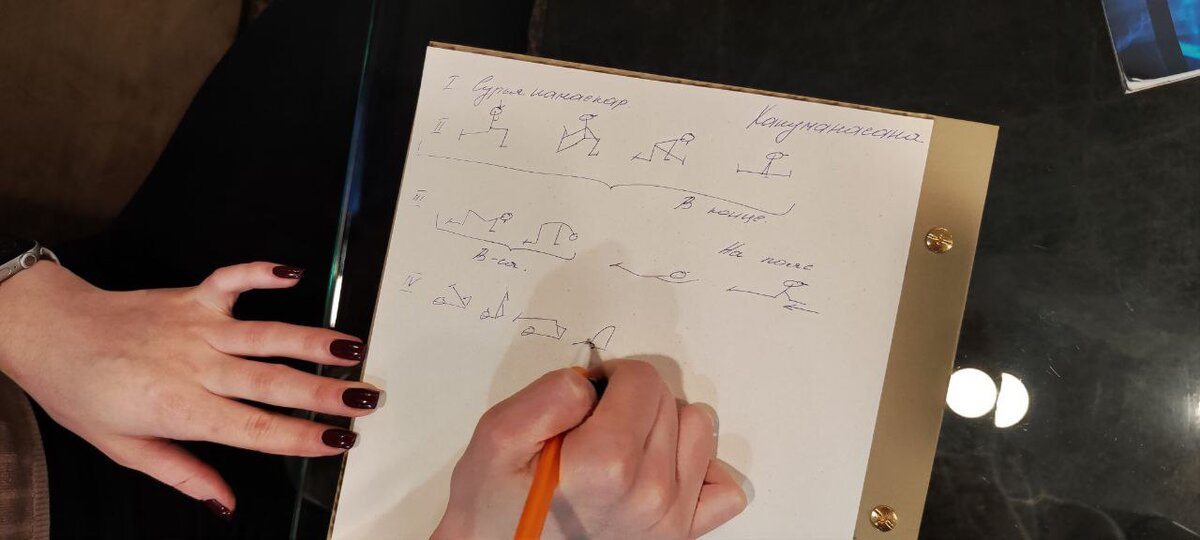 I Сурья намаскар.
Хануманасана
II
В конце.
III
В-ся.
На полу
IV